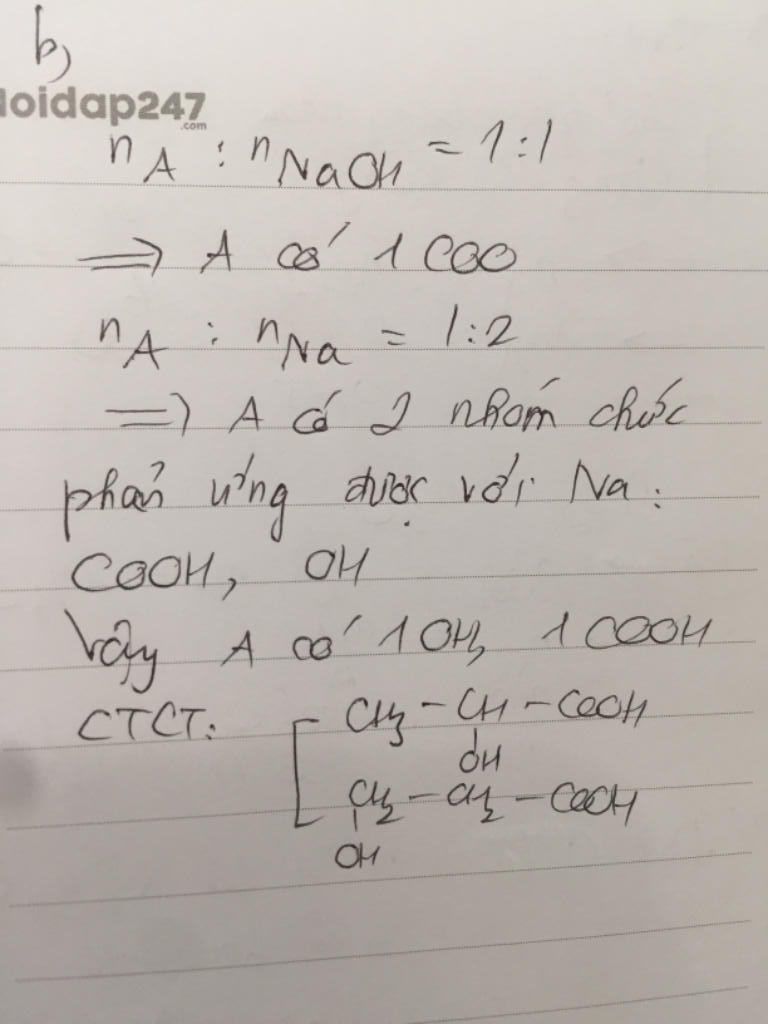 b,
loidap247
.com
nA : nNaOH = 1:1
=> A có 1 COO
nA : nNa = 1:2
=> A có 2 nhóm chức
phản ứng được với Na:
COOH, OH
Vậy A có 1 OH, 1 COOH
CTCT: [ CH3 - CH - COOH
OH
CH2 - CH2 - COOH
OH